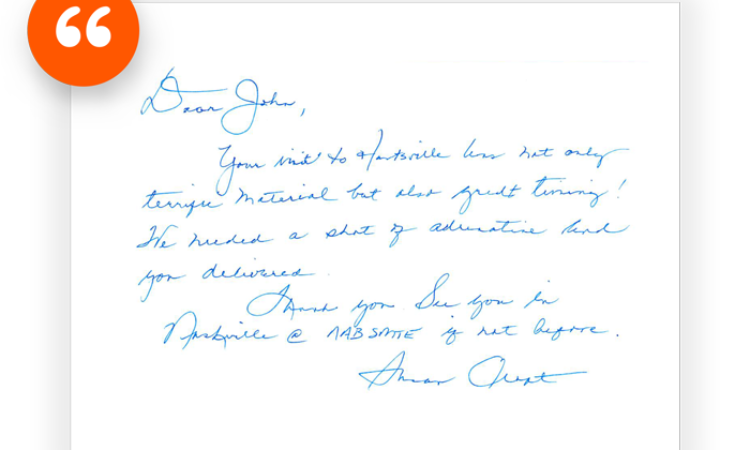 Dear John,
Your visit to Hartsville was not only
terrific material but also great timing!
We needed a shot of adrenaline and
you delivered.
Thank you. See you in
Nashville @ if not before.